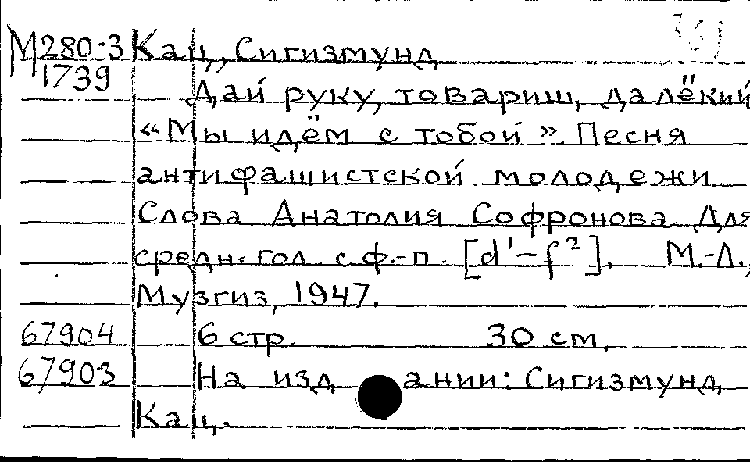 М280-3 Кац, Сигизмунд
1739
Дай руку, товарищ далёкий
«Мы идём с тобой». Песня
антифашистской молодежи
Слова Анатолия Софронова Для
средн. гол. с ф.-п. [d¹–f²]. М.-Л.,
Музгиз, 1947.
67904 6 стр. 30 см.
67903 На издании: Сигизмунд
Кац.